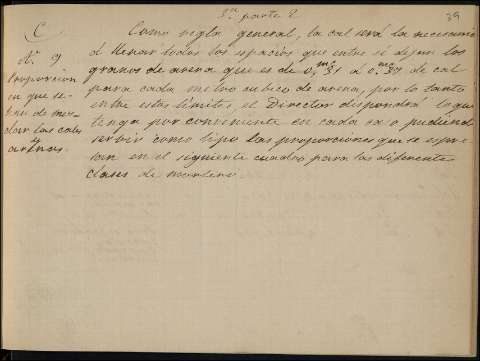 2ª parte 2
39
C
Nº 9
Proporcion
en que se
han de mez-
clar las cales
y
arenas.
Como regla general, la cal será la necesaria
á llenar todos los espacios que entre sí dejan los
granos de arena que es de 0,mc31 á 0,mc39 de cal
para cada metro cubico de arena, por lo tanto
entre estos limites, el Director dispondrá lo que
tenga por conveniente en cada caso pudiendo
servir como tipo las proporciones que se espre-
san en el siguiente cuadro para las diferentes
clases de morteros.